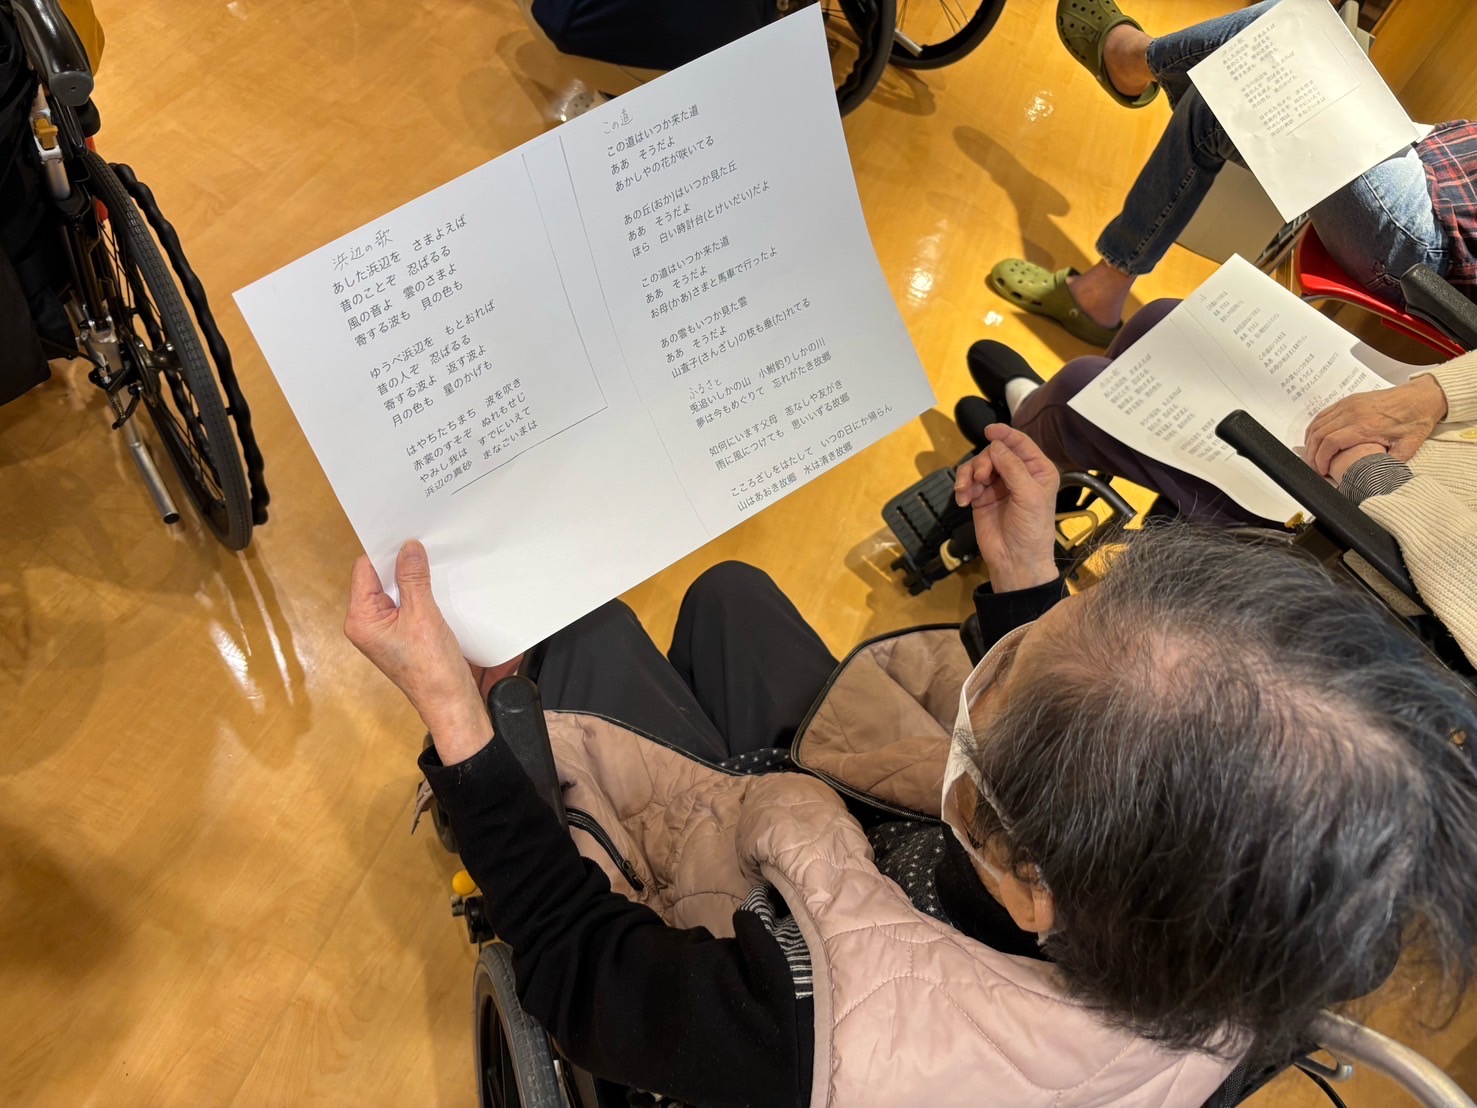 浜辺の歌
あした浜辺を さまよえば
昔のことぞ 忍ばるる
風の音よ 雲のさまよ
寄する波も 貝の色も
ゆうべ浜辺を もとおれば
昔の人ぞ 忍ばるる
寄する波よ 返す波よ
月の色も 星のかげも
はやちたちまち 波を吹き
赤裳のすそぞ ぬれもせじ
やみし我は すでにいえて
浜辺の真砂 まなごいまは
この道
この道はいつか来た道
ああ そうだよ
あかしやの花が咲いてる
あの丘(おか)はいつか見た丘
ああ そうだよ
ほら 白い時計台(とけいだい)だよ
この道はいつか来た道
ああ そうだよ
お母(かあ)さまと馬車で行ったよ
あの雲もいつか見た雲
ああ そうだよ
山査子(さんざし)の枝も垂(た)れてる
ふるさと
兎追いしかの山 小鮒釣りしかの川
夢は今もめぐりて 忘れがたき故郷
如何にいます父母 恙なしや友がき
雨に風につけても 思いいずる故郷
こころざしをはたして いつの日にか帰らん
山はあおき故郷 水は清き故郷